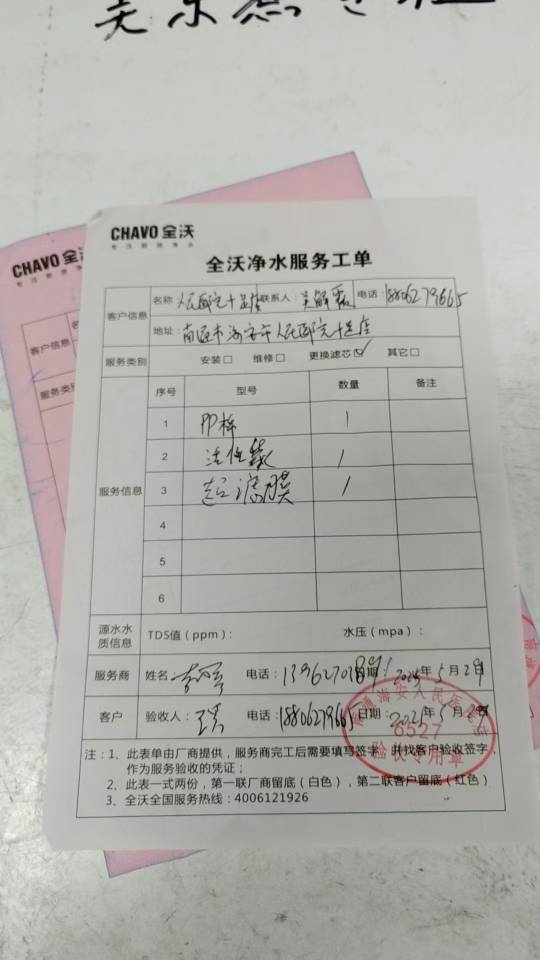 CHAVO 全沃
专注厨房净水
CHAVO 全沃
全沃净水服务工单
客户信息
名称: 人民医院十五楼 联系人: 吴 电话: 18806279665
地址: 南通市海安市人民医院十五楼
服务类别 安装□ 维修□ 更换滤芯☑ 其它□
服务信息
序号 型号 数量 备注
1 PP棉 1
2 活性炭 1
3 超滤膜 1
4
5
6
源水水质信息 TDS值（ppm）: 水压（mpa）:
服务商 姓名: 电话: 日期: 2025年5月29
客户 验收人: 电话: 18806279665 日期: 2025年5月29
海安人民医院
6527
验收专用章
注：1、此表单由厂商提供，服务商完工后需要填写签字，并找客户验收签字
作为服务验收的凭证；
2、此表一式两份，第一联厂商留底（白色），第二联客户留底（红色）
3、全沃全国服务热线：4006121926
客户信息
服务类别